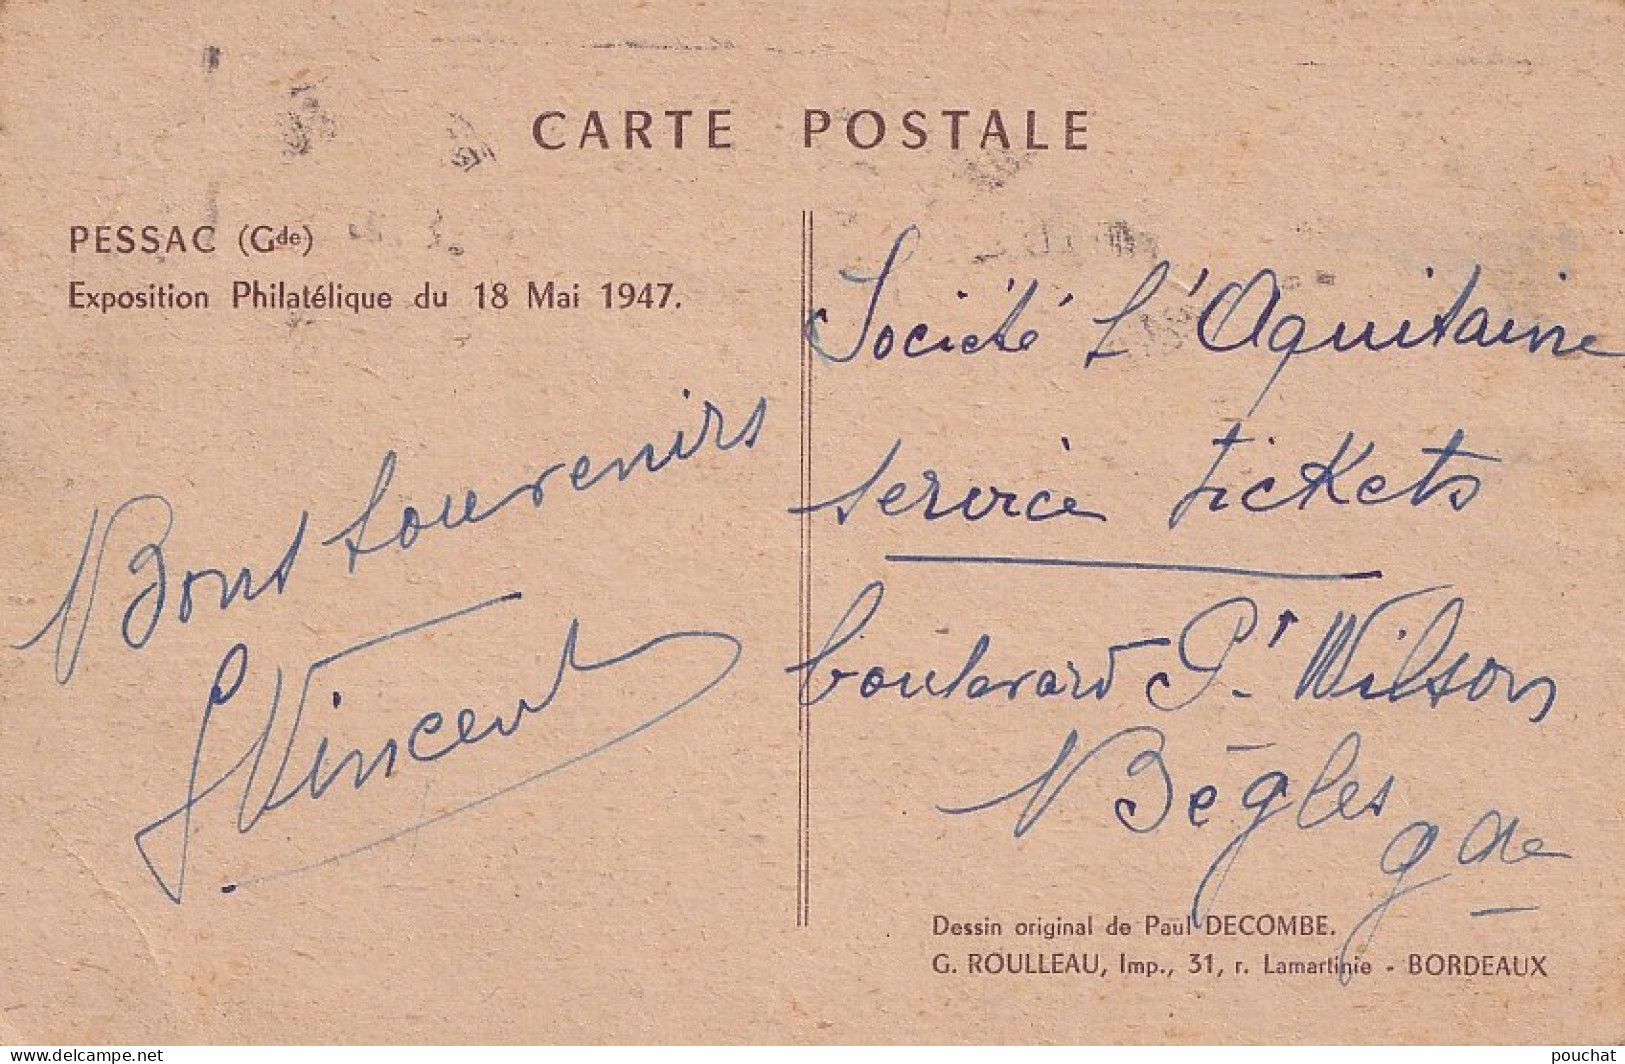 CARTE POSTALE
PESSAC (Gde)
Exposition Philatélique du 18 Mai 1947.
Bons Souvenirs
Vincent
Société L'Aquitaine
service tickets
boulevard Pt Wilson
Bègles
gde
Dessin original de Paul DECOMBE.
G. ROULLEAU, Imp., 31, r. Lamartinie - BORDEAUX
www.delcampe.net
pouchat